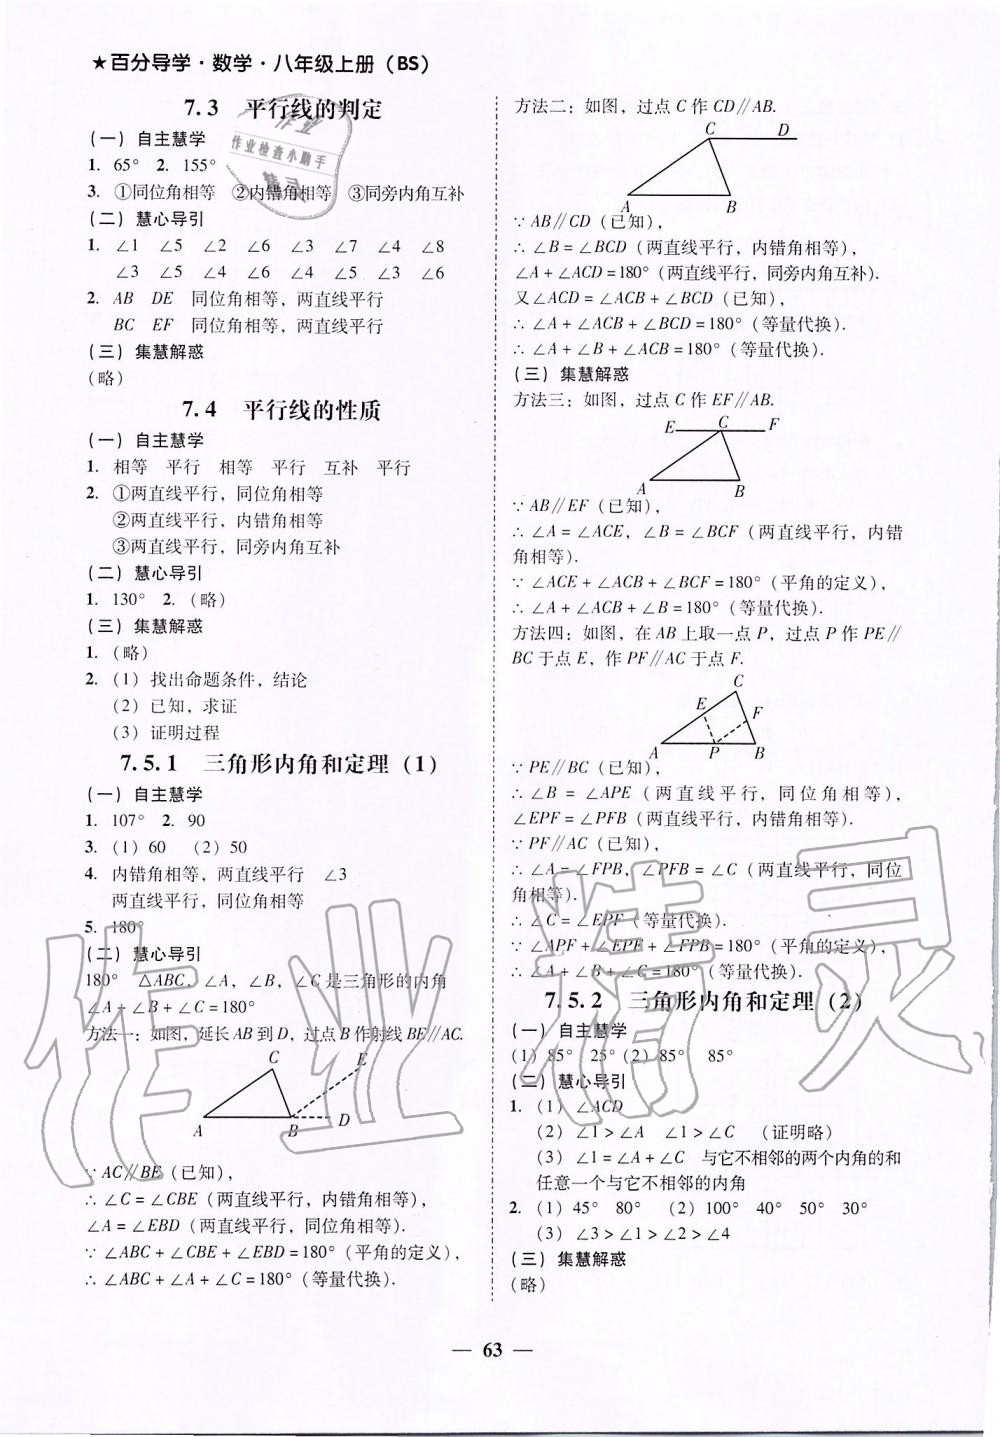 ★百分导学·数学·八年级上册（BS）
7.3 平行线的判定
（一）自主慧学
1. 65° 2. 155°
3. ①同位角相等 ②内错角相等 ③同旁内角互补
（二）慧心导引
1. ∠1 ∠5 ∠2 ∠6 ∠3 ∠7 ∠4 ∠8
∠3 ∠5 ∠4 ∠6 ∠4 ∠5 ∠3 ∠6
2. AB DE 同位角相等，两直线平行
BC EF 同位角相等，两直线平行
（三）集慧解惑
（略）
7.4 平行线的性质
（一）自主慧学
1. 相等 平行 相等 平行 互补 平行
2. ①两直线平行，同位角相等
②两直线平行，内错角相等
③两直线平行，同旁内角互补
（二）慧心导引
1. 130° 2.（略）
（三）集慧解惑
1.（略）
2.（1）找出命题条件，结论
（2）已知，求证
（3）证明过程
7.5.1 三角形内角和定理（1）
（一）自主慧学
1. 107° 2. 90
3.（1）60 （2）50
4. 内错角相等，两直线平行 ∠3
两直线平行，同位角相等
5. 180°
（二）慧心导引
180° △ABC，∠A，∠B，∠C是三角形的内角
∠A+∠B+∠C=180°
方法一：如图，延长AB到D，过点B作射线BE∥AC.
C E
A B D
∵AC∥BE（已知），
∴∠C=∠CBE（两直线平行，内错角相等），
∠A=∠EBD（两直线平行，同位角相等）.
∵∠ABC+∠CBE+∠EBD=180°（平角的定义），
∴∠ABC+∠A+∠C=180°（等量代换）.
方法二：如图，过点C作CD∥AB.
C D
A B
∵AB∥CD（已知），
∴∠B=∠BCD（两直线平行，内错角相等），
∠A+∠ACD=180°（两直线平行，同旁内角互补）.
又∠ACD=∠ACB+∠BCD（已知），
∴∠A+∠ACB+∠BCD=180°（等量代换）.
∴∠A+∠B+∠ACB=180°（等量代换）.
（三）集慧解惑
方法三：如图，过点C作EF∥AB.
E C F
A B
∵AB∥EF（已知），
∴∠A=∠ACE，∠B=∠BCF（两直线平行，内错
角相等）.
∵∠ACE+∠ACB+∠BCF=180°（平角的定义），
∴∠A+∠ACB+∠B=180°（等量代换）.
方法四：如图，在AB上取一点P，过点P作PE∥
BC于点E，作PF∥AC于点F.
C
E F
A P B
∵PE∥BC（已知），
∴∠B=∠APE（两直线平行，同位角相等），
∠EPF=∠PFB（两直线平行，内错角相等）.
∵PF∥AC（已知），
∴∠A=∠FPB，∠PFB=∠C（两直线平行，同位
角相等）.
∴∠C=∠EPF（等量代换）.
∵∠APF+∠EPE+∠FPB=180°（平角的定义），
∴∠A+∠B+∠C=180°（等量代换）.
7.5.2 三角形内角和定理（2）
（一）自主慧学
（1）85° 25°（2）85° 85°
（二）慧心导引
1.（1）∠ACD
（2）∠1>∠A ∠1>∠C （证明略）
（3）∠1=∠A+∠C 与它不相邻的两个内角的和
任意一个与它不相邻的内角
2.（1）45° 80° （2）100° 40° 50° 30°
（3）∠3>∠1>∠2>∠4
（三）集慧解惑
（略）
— 63 —
作业
作业检查小助手
作业精灵